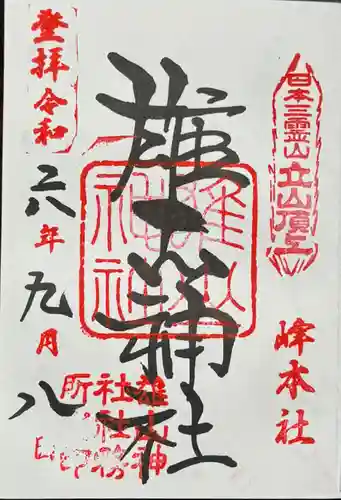 日本三霊山
立山頂上
峰本社
雄山神社
雄山
神社
登拝令和六年九月八
雄山神
社社務
所